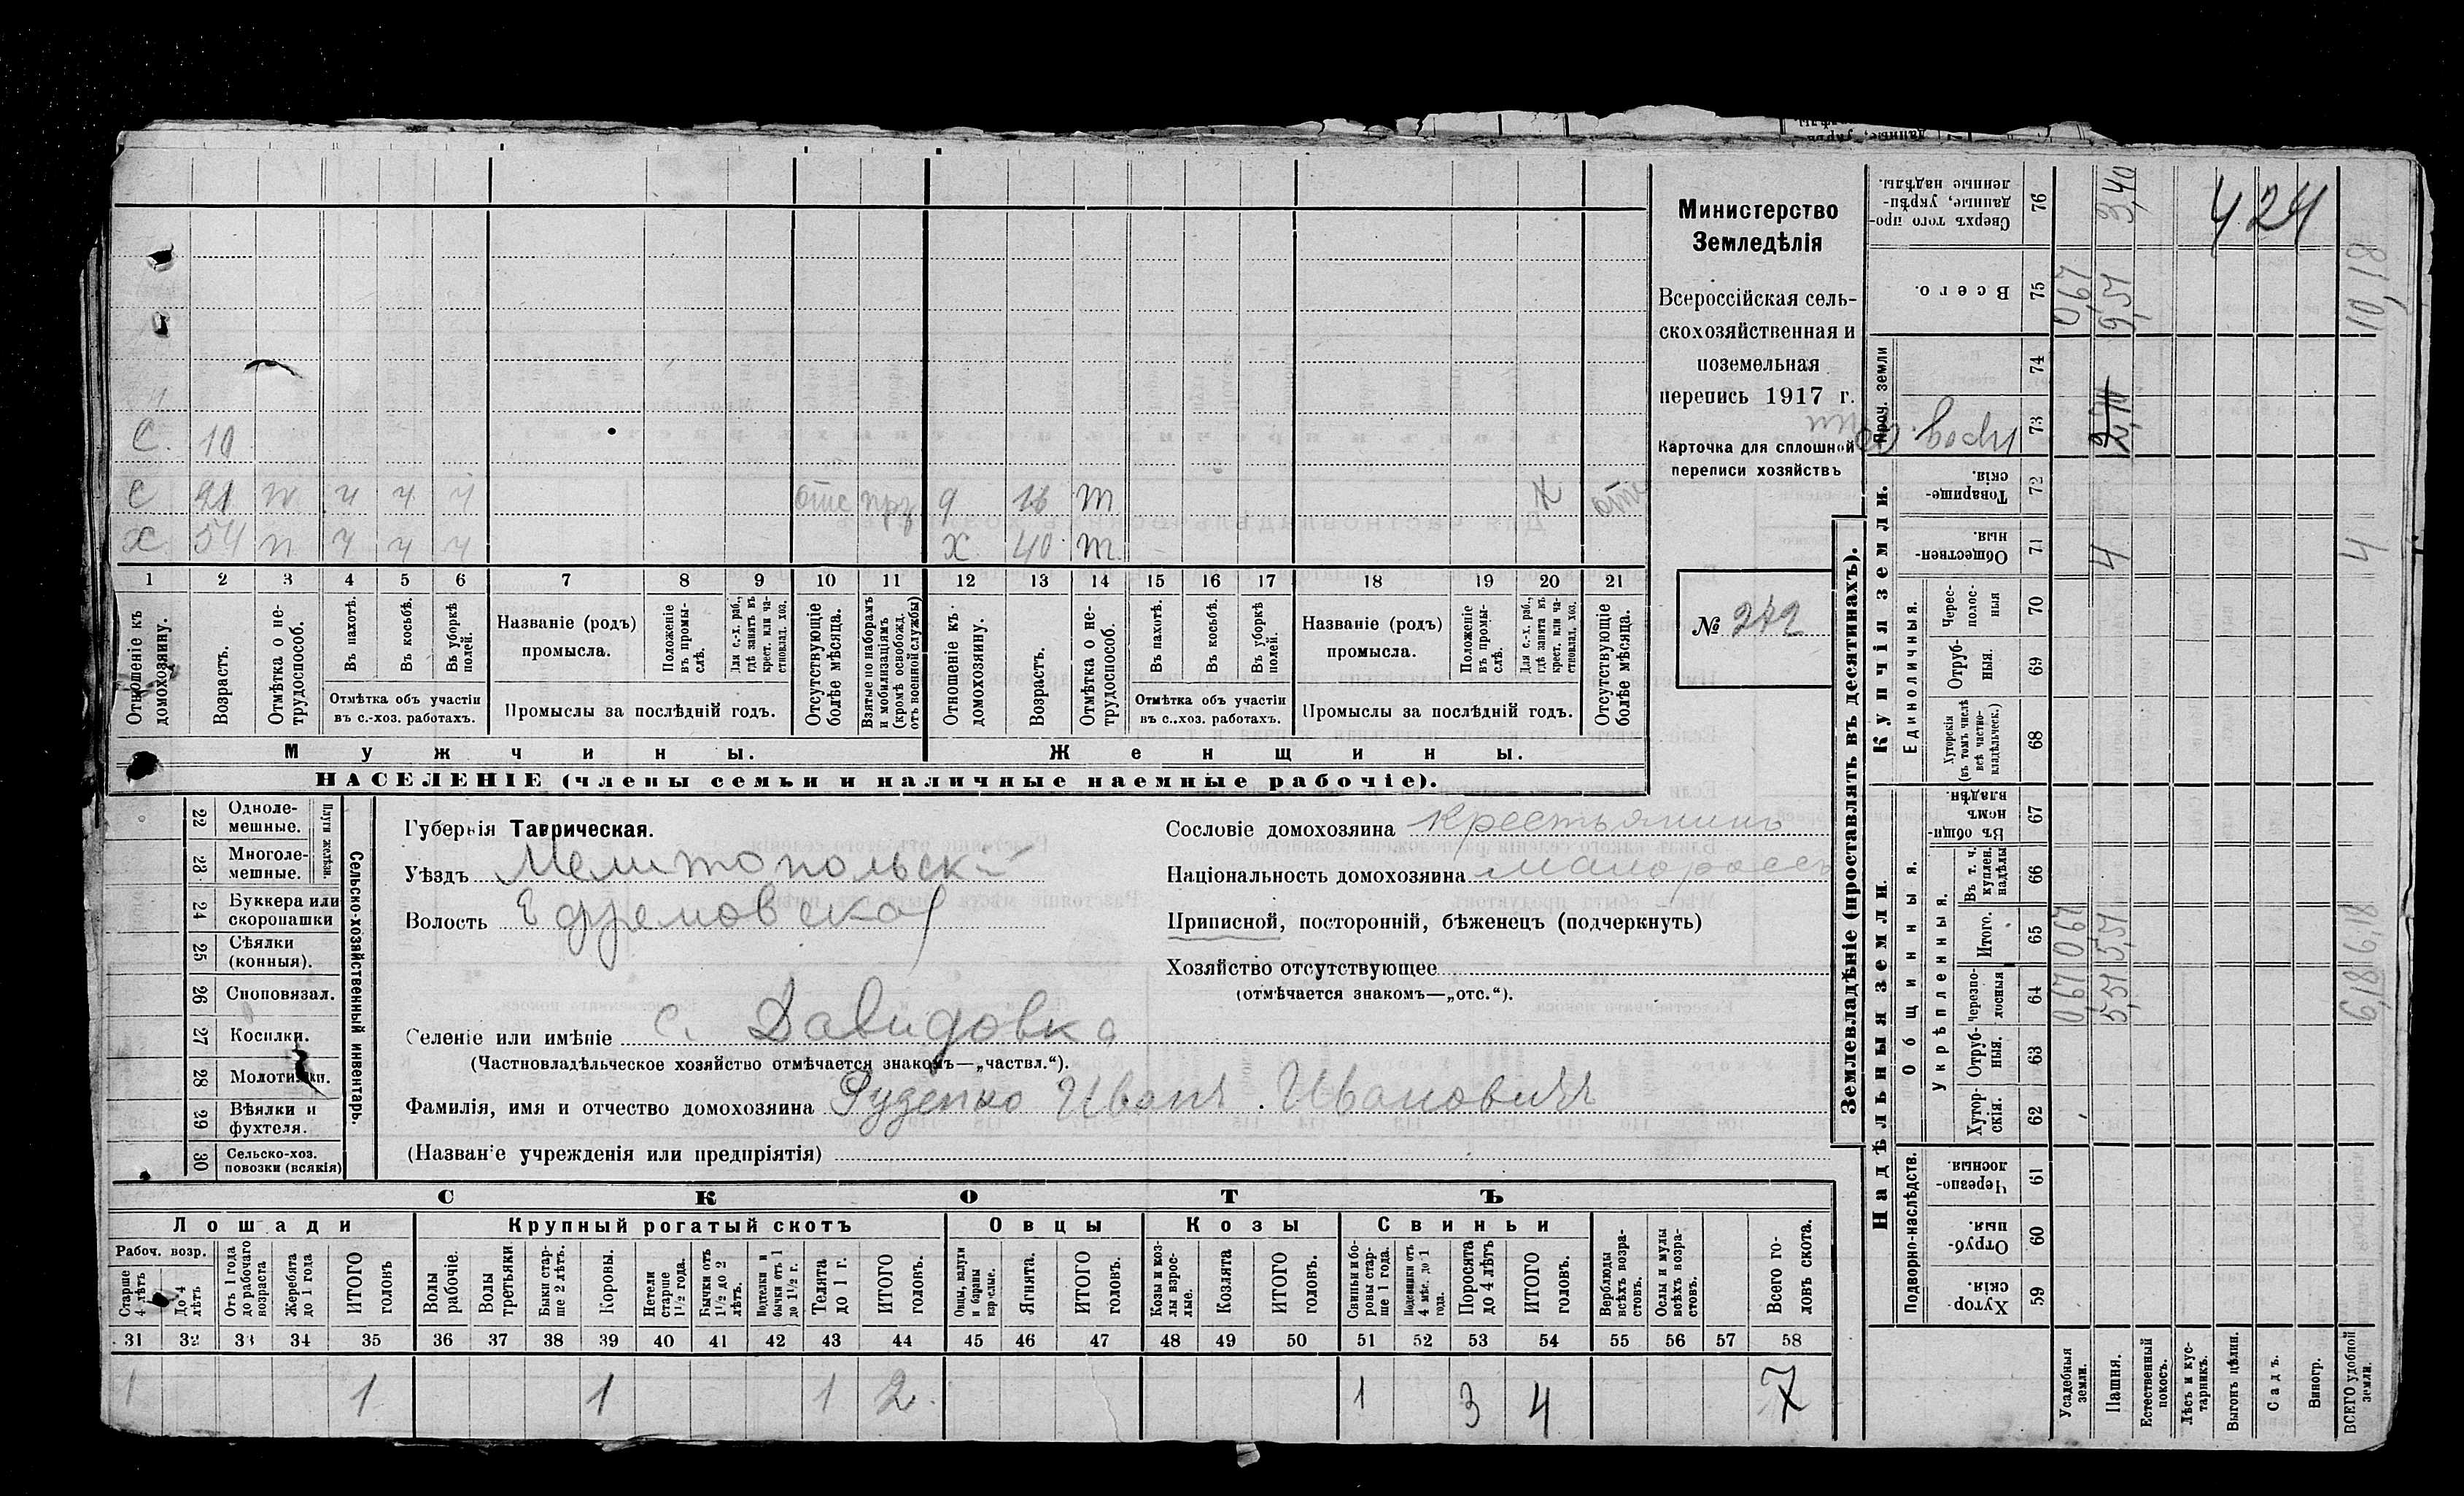 С. 10
С 21 т ч ч ч отс прз д 16 т Х отс
Х 54 п ч ч ч Х 40 т
1 2 3 4 5 6 7 8 9 10 11 12 13 14 15 16 17 18 19 20 21
Отношеніе къ домохозяину.
Возрастъ.
Отмѣтка о не-трудоспособ.
Въ пахотѣ.
Въ косьбѣ.
Въ уборкѣ полей.
Отмѣтка объ участіи
въ с.-хоз. работахъ.
Названіе (родъ)
промысла.
Положеніе въ промы-слѣ.
Для с.-х. раб., гдѣ занятъ въ крест. или ча-стновлад. хоз.
Промыслы за послѣдній годъ.
Отсутствующіе болѣе мѣсяца.
Взятые по наборамъ и мобилизаціямъ (кромѣ освобожд. отъ военной службы)
Отношеніе къ домохозяину.
Возрастъ.
Отмѣтка о не-трудоспособ.
Въ пахотѣ.
Въ косьбѣ.
Въ уборкѣ полей.
Отмѣтка объ участіи
въ с.-хоз. работахъ.
Названіе (родъ)
промысла.
Положеніе въ промы-слѣ.
Для с.-х. раб., гдѣ занята въ крест. или ча-стновлад. хоз.
Промыслы за послѣдній годъ.
Отсутствующіе болѣе мѣсяца.
Мужчины.
Женщины.
НАСЕЛЕНІЕ (члены семьи и наличные наемные рабочіе).
Министерство
Земледѣлія
Всероссійская сель-
скохозяйственная и
поземельная
перепись 1917 г.
Карточка для сплошной
переписи хозяйствъ
№ 272
22 Одноле-мешные.
23 Многоле-мешные.
Плуги желѣзн.
24 Буккера или скоропашки
25 Сѣялки (конныя).
26 Сноповязал.
27 Косилки.
28 Молотилки.
29 Вѣялки и фухтеля.
30 Сельско-хоз. повозки (всякія)
Сельско-хозяйственный инвентарь.
Губернія Таврическая.
Уѣздъ Мелитопольскій
Волость Ефремовская
Селеніе или имѣніе с. Давидовка
(Частновладѣльческое хозяйство отмѣчается знакомъ—„частвл.“).
Фамилія, имя и отчество домохозяина Руденко Иванъ Ивановичъ
(Названіе учрежденія или предпріятія)
Сословіе домохозяина крестьянинъ
Національность домохозяина малороссъ
Приписной, посторонній, бѣженецъ (подчеркнуть)
Хозяйство отсутствующее
(отмѣчается знакомъ—„отс.“).
СКОТЪ
Лошади
Крупный рогатый скотъ
Овцы
Козы
Свиньи
Рабоч. возр.
Старше 4 лѣтъ
До 4 лѣтъ
Отъ 1 года до рабочаго возраста
Жеребята до 1 года
ИТОГО головъ
Волы рабочіе.
Волы третьяки
Быки стар-ше 2 лѣтъ.
Коровы.
Нетели старше 1½ года.
Бычки отъ 1½ до 2 лѣтъ.
Подтелки и бычки отъ 1 до 1½ г.
Телята до 1 г.
ИТОГО головъ.
Овцы, валухи и бараны взрослые.
Ягнята.
ИТОГО головъ.
Козы и коз-лы взрос-лые.
Козлята
ИТОГО головъ.
Свиньи и бо-ровы стар-ше 1 года.
Подсвинки отъ 4 мѣс. до 1 года.
Поросята до 4 лѣтъ
ИТОГО головъ.
Верблюды всѣхъ возра-стовъ.
Ослы и мулы всѣхъ возра-стовъ.
Всего го-ловъ скота.
31 32 33 34 35 36 37 38 39 40 41 42 43 44 45 46 47 48 49 50 51 52 53 54 55 56 57 58
1 1 1 1 2 1 3 4 7
Землевладѣніе (проставлять въ десятинахъ).
Надѣльныя земли.
Купчія земли.
Проч. земли
Подворно-наслѣдств.
Общинныя.
Укрѣпленныя.
Единоличныя.
Сверхъ того про-данные, укрѣп-ленные надѣлы. 76 3,40
Всего. 75 0,67 9,51 10,18
74
73
Товарище-скія. 72
Обществен-ныя. 71 4 4
Черес-полос-ныя 70
Отруб-ныя. 69
Хуторскія (въ томъ числѣ всѣ частно-владѣльческ.) 68
Въ общин-номъ владѣн. 67
Въ т. ч. куплен. надѣлы 66
Итого. 65 0,67 5,51 6,18
Черезпо-лосныя 64 0,67 5,51 6,18
Отруб-ныя. 63
Хутор-скія. 62
Черезпо-лосныя. 61
Отруб-ныя. 60
Хутор-скія. 59
Усадебныя земли.
Пашня.
Естественный покосъ.
Лѣсъ и кус-тарникъ.
Выгонъ цѣлин.
Садъ.
Виногр.
ВСЕГО удобной земли.
424